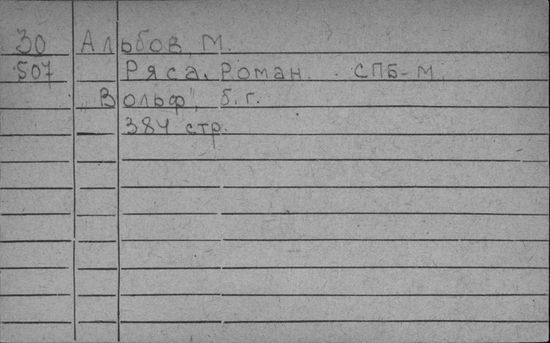 30 Альбов, М.
507 Ряса. Роман. СПБ-М.
"Вольф", б.г.
384 стр.